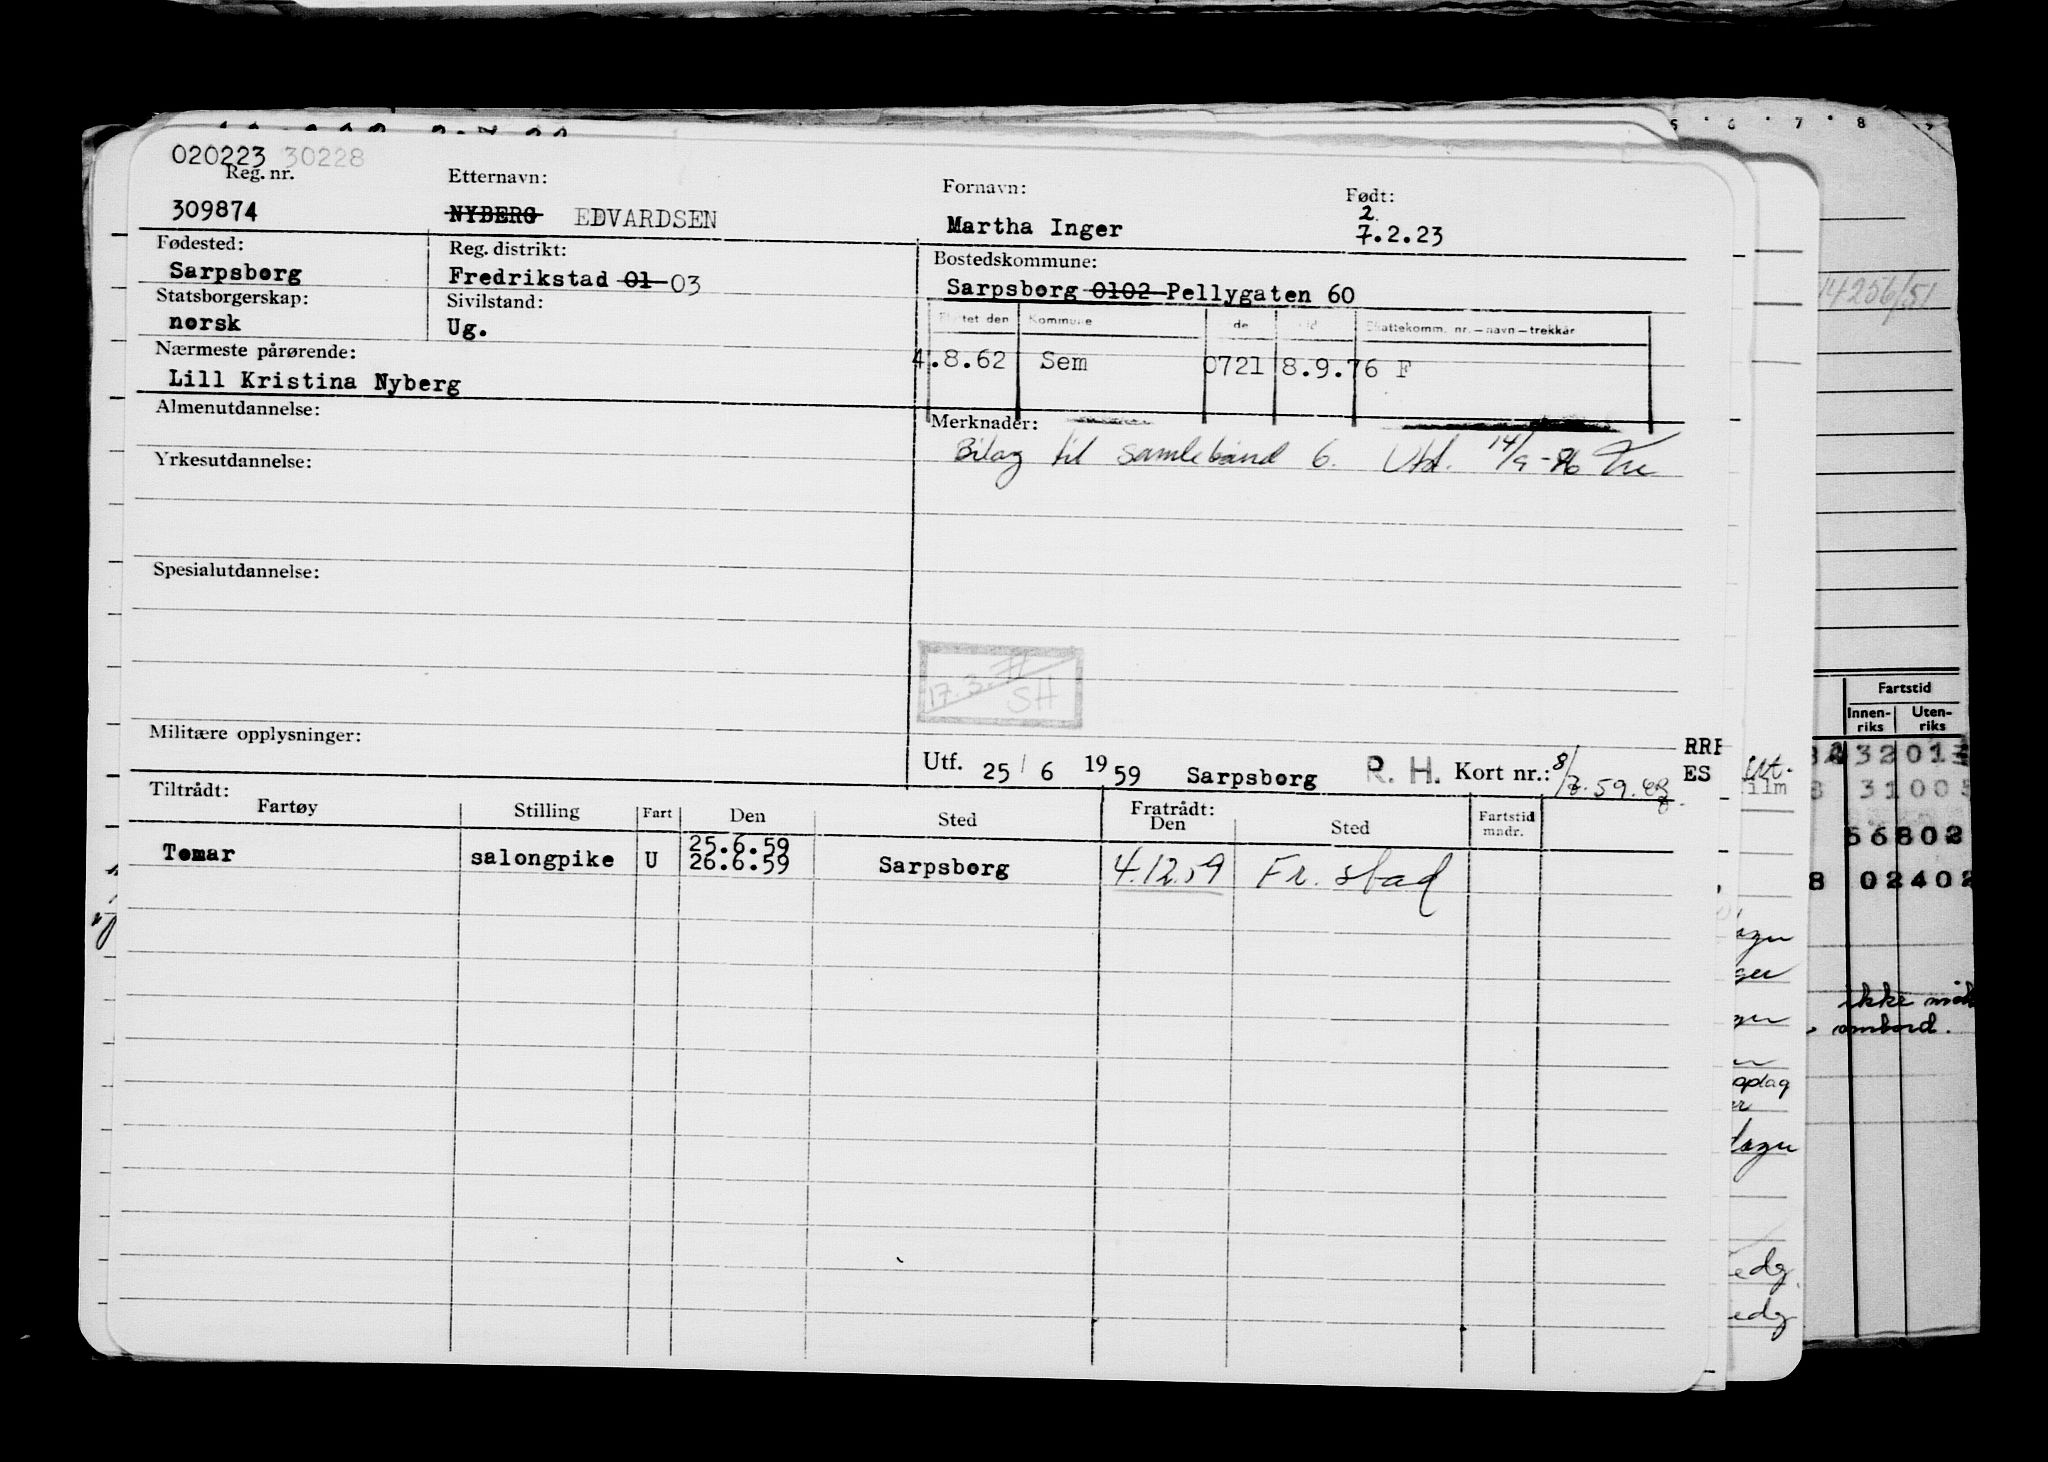 020223 30228
Reg. nr.
309874
Etternavn:
NYBERG EDVARDSEN
Fornavn:
Martha Inger
Født:
2.
7.2.23
Fødested:
Sarpsborg
Reg. distrikt:
Fredrikstad 01 03
Bostedskommune:
Sarpsborg 0102 Pellygaten 60
Statsborgerskap:
norsk
Sivilstand:
Ug.
Kommune
Skattekomm. nr.—navn—trekkår
4.8.62 Sem 0721 8.9.76 F
Nærmeste pårørende:
Lill Kristina Nyberg
Almenutdannelse:
Merknader:
Bilag til samlebånd 6. Utst. 14/9-76
Yrkesutdannelse:
Spesialutdannelse:
17.3.71
SH
Militære opplysninger:
Utf. 25/6 1959 Sarpsborg R. H. Kort nr.: 8/7.59.
Tiltrådt:
Fartøy Stilling Fart Den Sted
Fratrådt:
Den Sted
Fartstid
mndr.
25.6.59
Tomar salongpike U 26.6.59 Sarpsborg 4.12.59 Fr. stad
5 6 7 8
14256/51
Fartstid
Innen-
riks
Uten-
riks
RRE
ES
ilm
3201
3100
56802
8 02402
ikke
ombord.